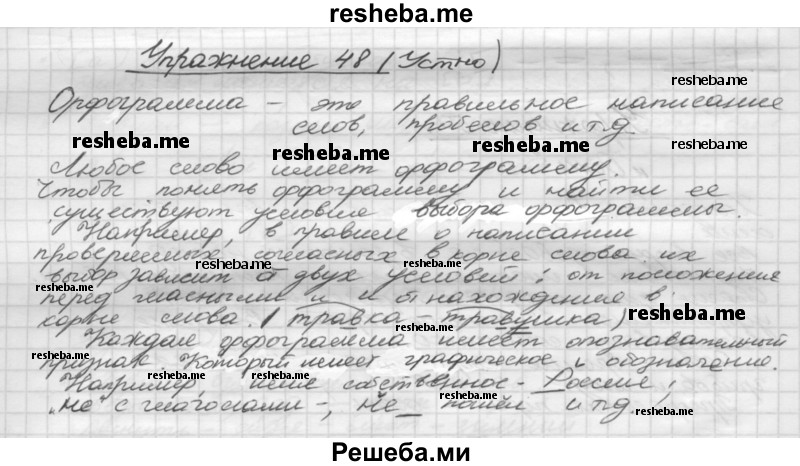 resheba.me
Упражнение 48 (Устно)
resheba.me
Орфограмма - это правильное написание
слов, пробелов и т.д
resheba.me resheba.me resheba.me
Любое слово имеет орфограмму.
Чтобы понять орфограмму и найти ее
существуют условия выбора орфограммы.
Например, в правиле о написании
проверяемых согласных в корне слова их
resheba.me resheba.me
выбор зависит от двух условий: от положения
resheba.me
перед гласными и и от нахождения в
корне слова. (травка - травушка)
resheba.me resheba.me
Каждая орфограмма имеет опознавательный
resheba.me
признак Который имеет графическое и обозначение.
resheba.me
Например, имя собственное - Россия;
resheba.me
"не" с глаголами -, не нашёл и т.д.
resheba.me resheba.me
Решеба.ми